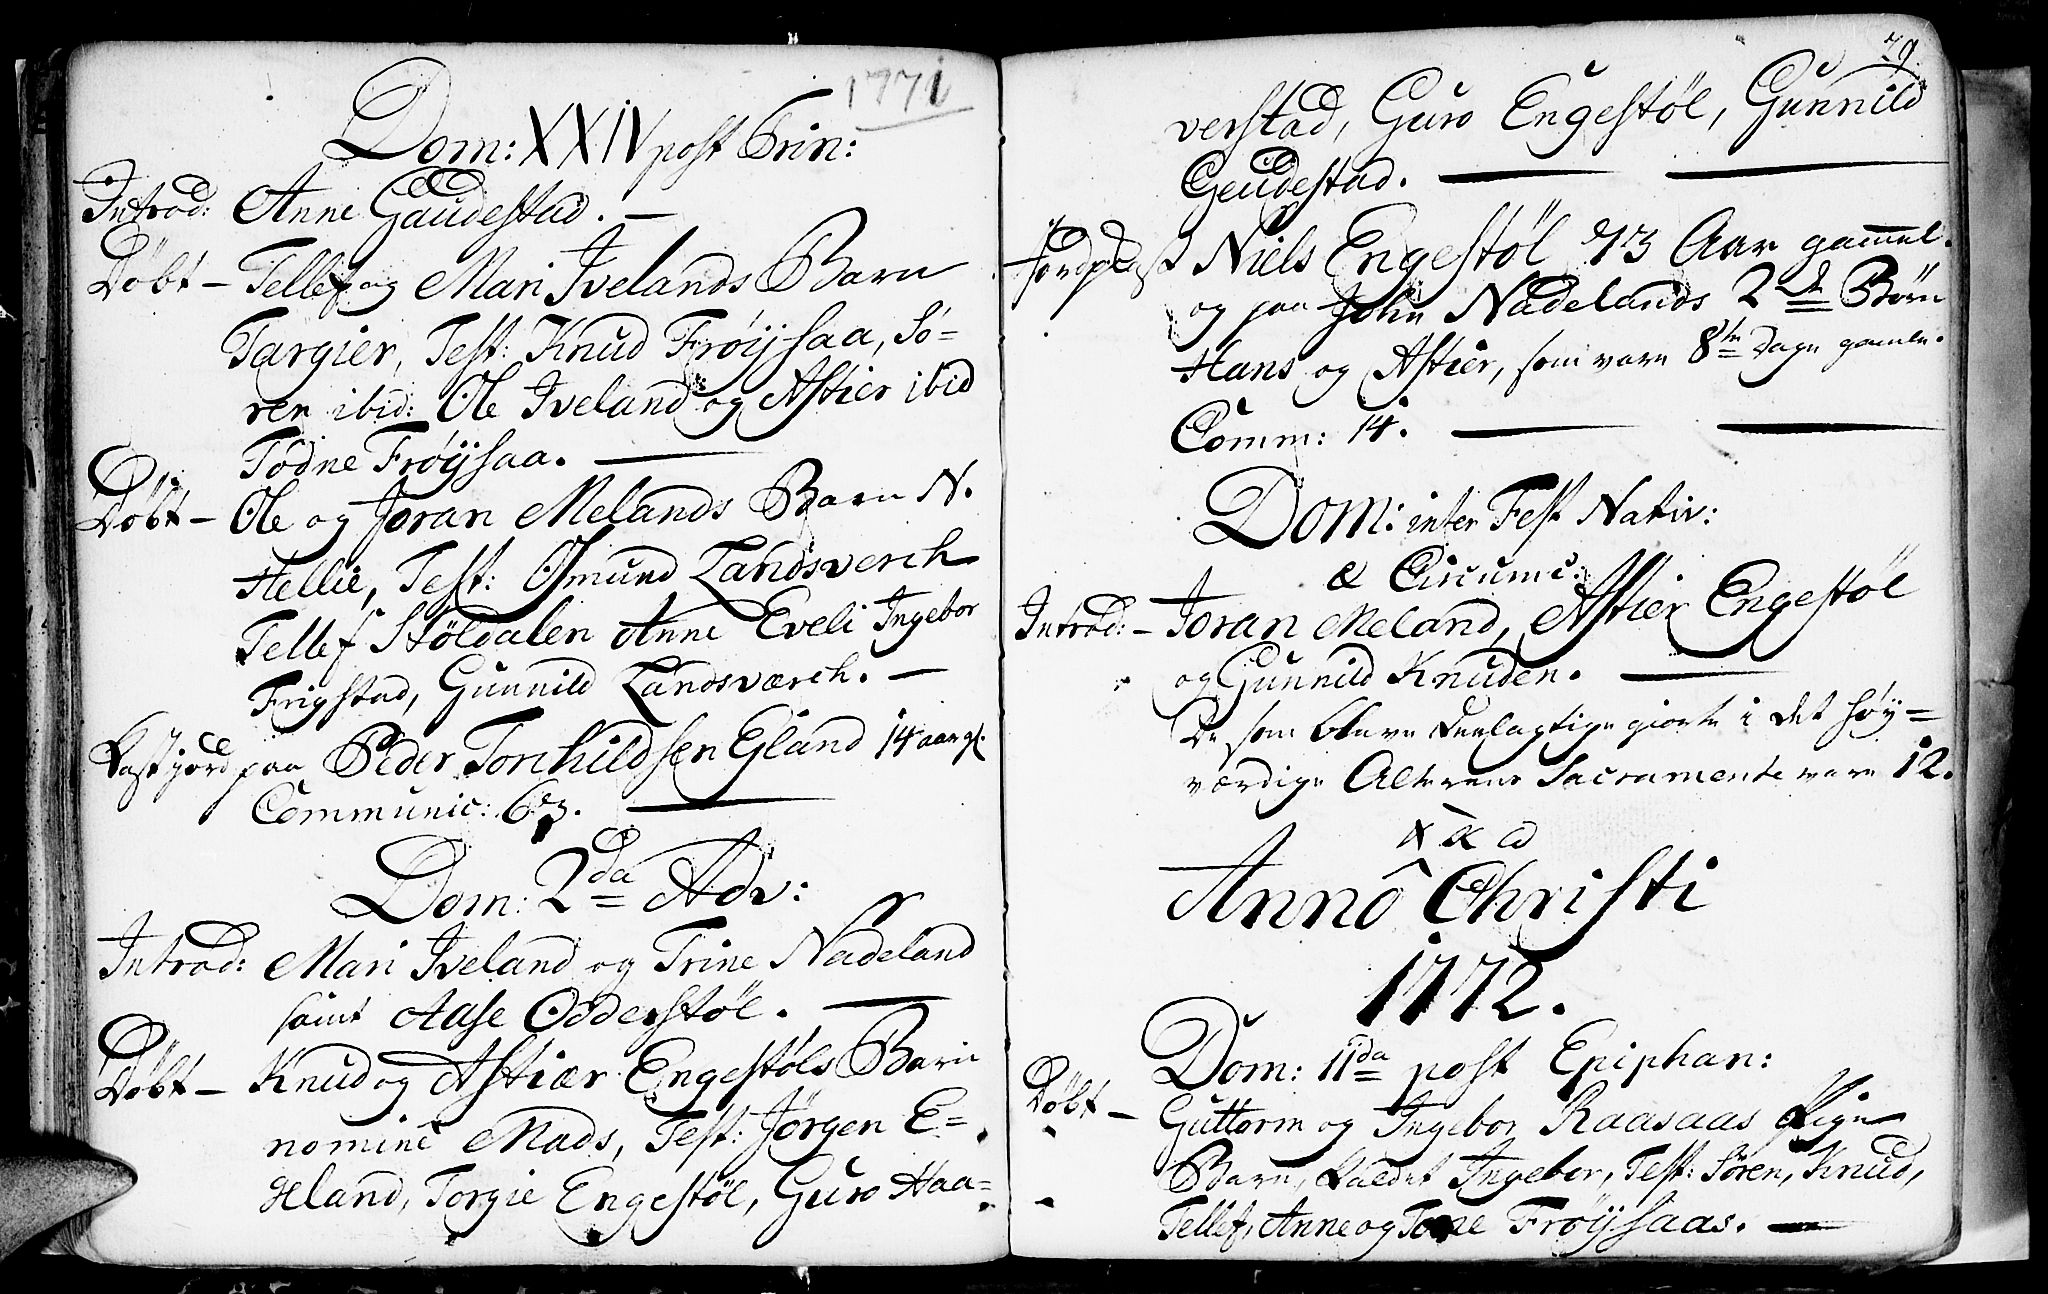 1771
Dom: XXIV post Trin:
Introd: Anne Gaudestad. —
Döbt — Tellef og Mari Ivelands Barn
Targier, Test: Knud Fröijsaa, Sö=
ren ibid: Ole Iveland og Astier ibid
Todne Fröijsaa. —
Döbt — Ole og Joran Melands Barn N.
Hellie, Test: Osmund Landsverch
Tellef Stöldalen Anne Eveli Ingebor
Frigstad, Gunnild Landsværch. —
Kast jord paa Peder Torchildsen Egland 14 aar gl.
Communic: 63. —
Dom: 2da Adv:
Introd: Mari Iveland og Trine Nadeland
samt Aase Odderstöl. —
Döbt — Knud og Astiær Engestöls Barn
nomine Mads, Test: Jörgen E=
geland, Torgie Engestöl, Guro Haa=
79.
verstad, Guro Engestöl, Gunnild
Geudestad. — —
Jordpaast Niels Engestöl 73 Aar gammel.
og paa John Nadelands 2de Börn
Hans og Astier, som vare 8te Dage gamle.
Comm: 14. — —
Dom: inter Fest Nativ:
& Circumc:
Introd: — Joran Meland, Astier Engestöl
og Gunnild Knuden. —
De som bleve deelagtige giorte i det höy=
værdige Alterens Sacramente vare 12.
Annô Christi
1772.
Dom: IIda post Epiphan:
Döbt — Guttorm og Ingebor Raasaas Pige
Barn, kaldet Ingebor, Test: Sören, Knud,
Tellef, Anne og Tone Fröijsaas. —